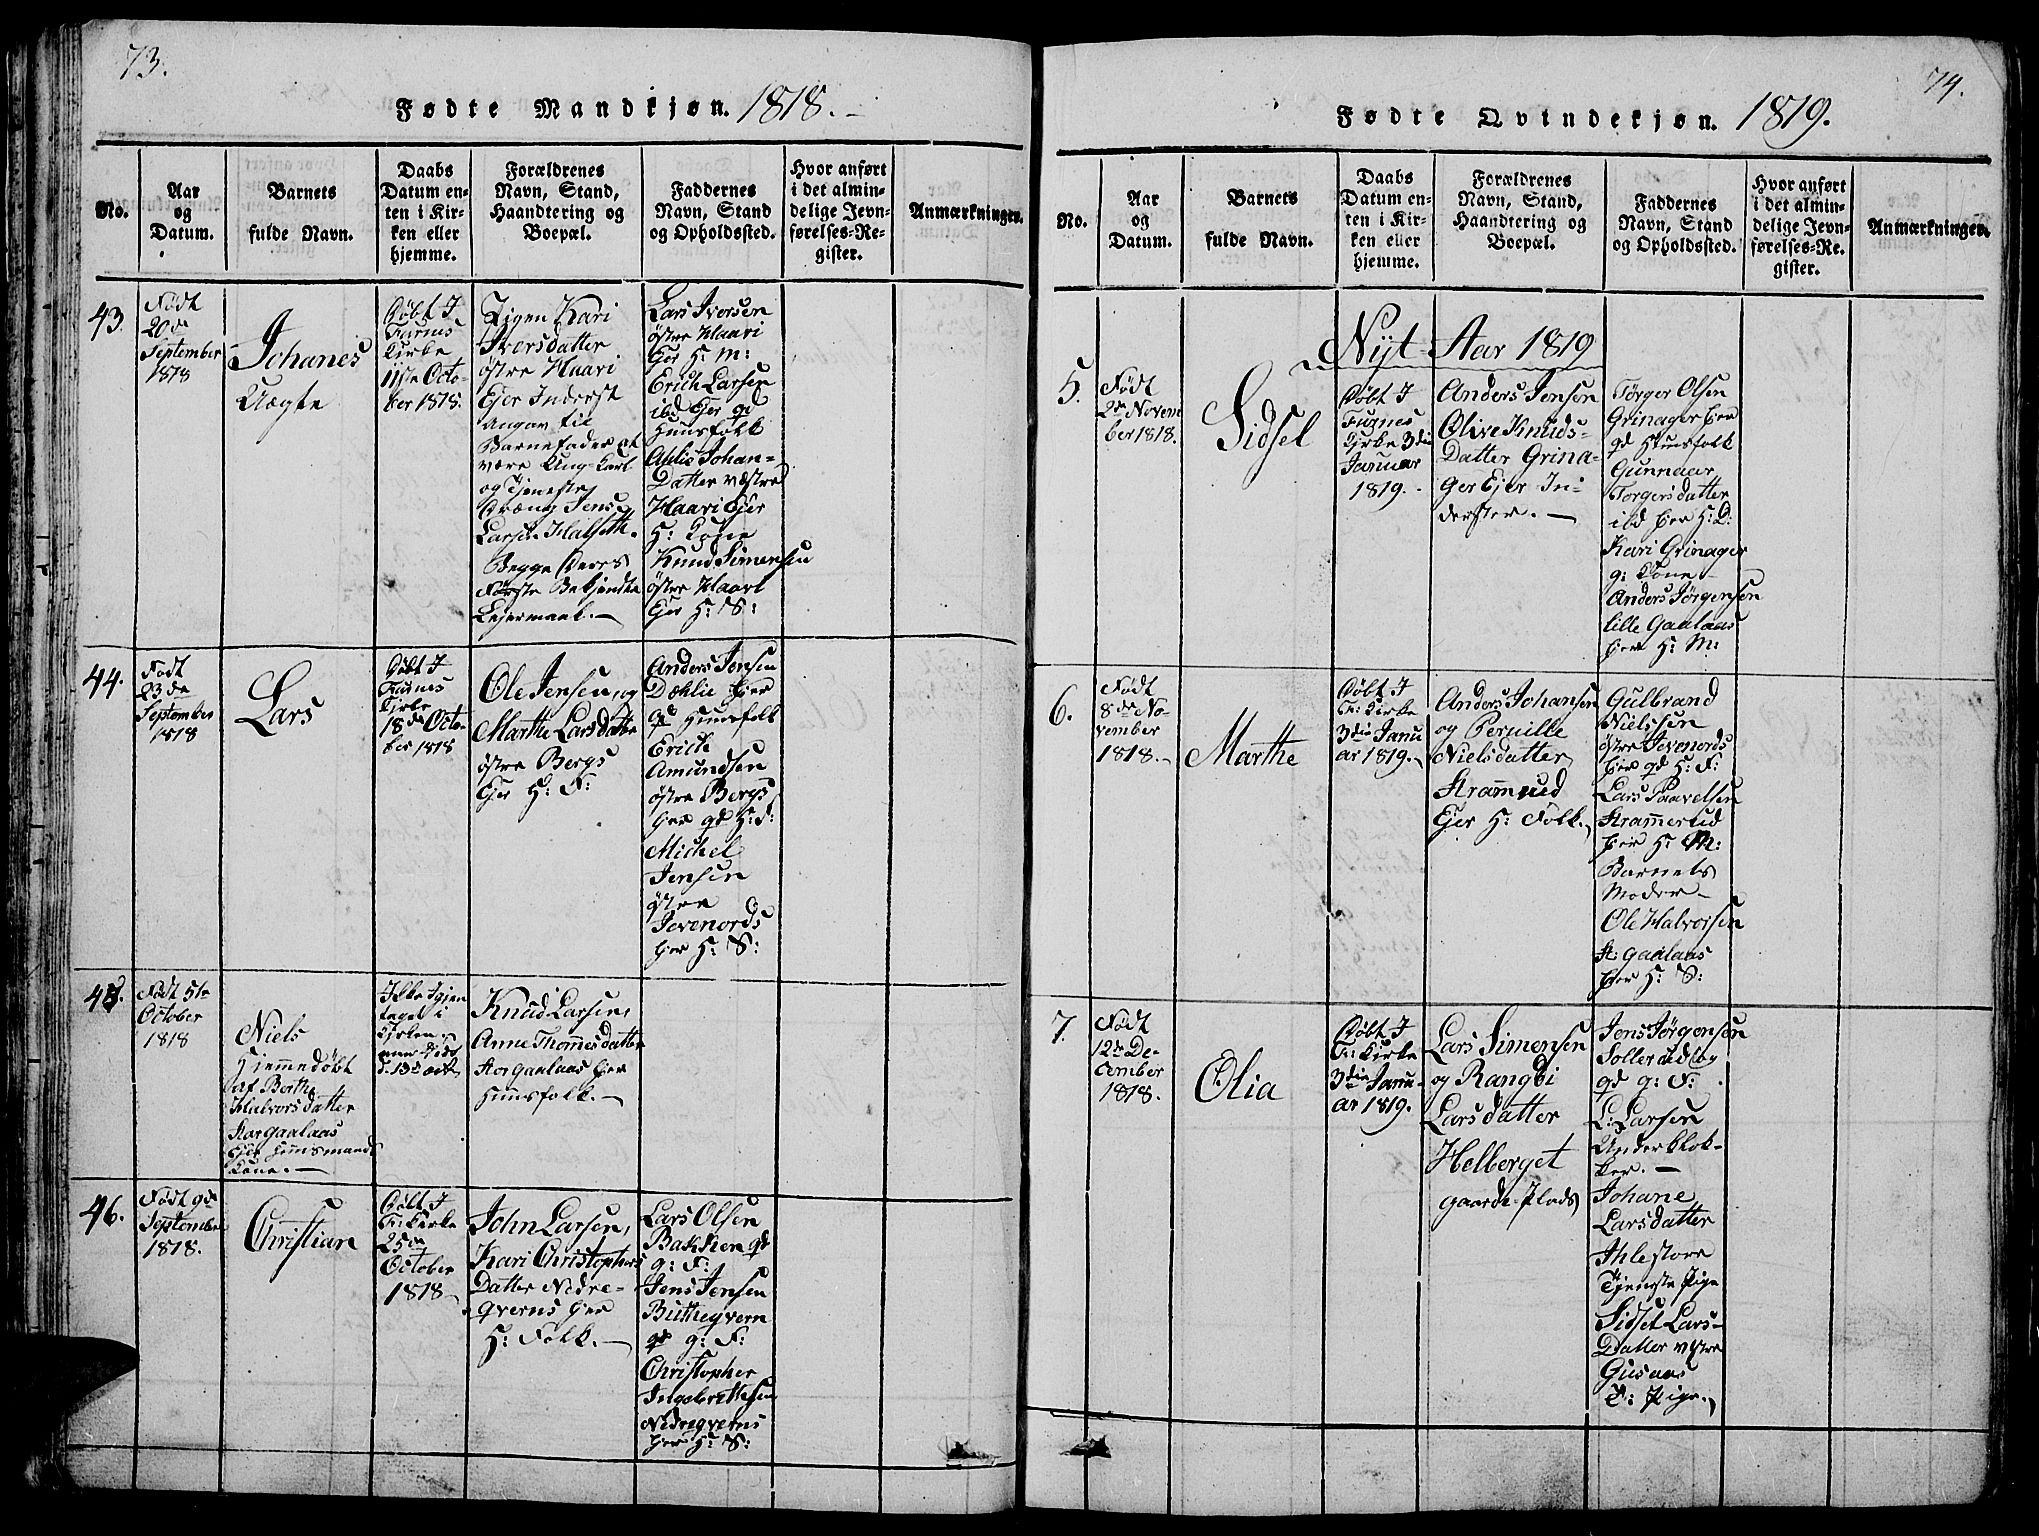 73.
Fødte Mandkjøn. 1818.
No.
Aar
og
Datum.
Barnets
fulde Navn.
Daabs
Datum en-
ten i Kir-
ken eller
hjemme.
Forældrenes
Navn, Stand,
Haandtering og
Boepæl.
Faddernes
Navn, Stand
og Opholdssted.
Hvor anført
i det almin-
delige Jevn-
førelses-Re-
gister.
Anmærkninger.
43.
Født
20de
September
1818
Johanes
Uægte
Døbt I
Furnes
Kirke
11te Octo-
ber 1818.
Pigen Kari
Iversdatter
østre Haari
Ejer Inderst
angav til
Barnefader at
være Ung-Karl
og Tjeneste
Dræng Jens
Larsen Halseth.
Begge Deres
Første Bekjendte
Lejermaal.
Lars Iversen
østre Haari
Ejer H: M:
Erich Larsen
ibd Ejer gd
Huusfolk
Ahlis Johan-
Datter væstre
Haari Ejer
H: Kone
Knud Simensen
østre Haari
Ejer H: S:
44.
Født
23de
September
1818
Lars
Døbt I
Furnes
Kirke
18de Octo-
ber 1818
Ole Jensen, og
Marthe Larsdatter
østre Bergs
Ejer H: F:
Anders Jensen
Dæhlie Ejer
gd Huusfolk
Erich
Amundsen
østre Bergs
Ejer gd H: F:
Michel
Jensen
østre
Jevenords
Ejer H: S:
45.
Født 5te
October
1818
Niels
Hjemmedøbt
af Berthe
Halvorsdatter
Storgaalaas
Ejer Huusmands
Kone.
Ikke Igjen
taget i
Kirken
Knud Larsen,
Anne Thommesdatter
Storgaalaas Ejer
Huusfolk.
46.
Født 9de
September
1818.
Christian
Døbt I
F: Kirke
25de
October
1818
John Larsen,
Kari Christophers
Datter Nedre-
qverns Ejer
H: Folk.
Lars Olsen
Bakken gd
g: F:
Jens Jensen
Butheqvern
gd g: F:
Christopher
Ingebrethsen
Nedreqverns
Ejer H: S:
74.
Fødte Qvindekjøn. 1819.
No.
Aar
og
Datum.
Barnets
fulde Navn.
Daabs
Datum en-
ten i Kir-
ken eller
hjemme.
Forældrenes
Navn, Stand,
Haandtering og
Boepæl.
Faddernes
Navn, Stand
og Opholdssted.
Hvor anført
i det almin-
delige Jevn-
førelses-Re-
gister.
Anmærkninger.
Nyt Aar 1819
5.
Født
2de Novem
ber 1818.
Sidsel
Døbt I
Furnes
Kirke 3die
Januar
1819.
Anders Jensen
Olive Knuds-
Datter Grina-
ger Ejer In-
derster.
Tørger Olsen
Grinager Ejer
gd Huusfolk
Gunnaar
Torgersdatter
ibd Ejer H: D:
Kari Grinager
g: Kone
Anders Jørgensen
lille Gaalaas
Ejer H: M:
6.
Født
8de No-
vember
1818.
Marthe
Døbt I
F: Kirke
3die Janu
ar 1819.
Anders Johansen
og Pernille
Nielsdatter
Strammrud
Ejer H: Folk.
Gulbrand
Nielssen
østre Jevenords
Ejer gd H: F:
Lars Paavelsen
Strammerud
Ejer H: M:
Barnets
Moder
Ole Halvorsen
St gaalaas
Ejer H: S:
7.
Født
12te De-
cember
1818.
Olia
Døbt I
F: Kirke
3die Janu-
ar 1819.
Lars Simensen
og Rangdi
Larsdatter
Helberget
gaarde-Plads
Jens Jørgensen
Sollerud
gd g: F:
L: Larsen
Underklok-
ker.
Johane
Larsdatter
Ihlestore
Tjeneste Pige
Sidsel Lars-
Datter vestre
Gusaas
T: Pige.